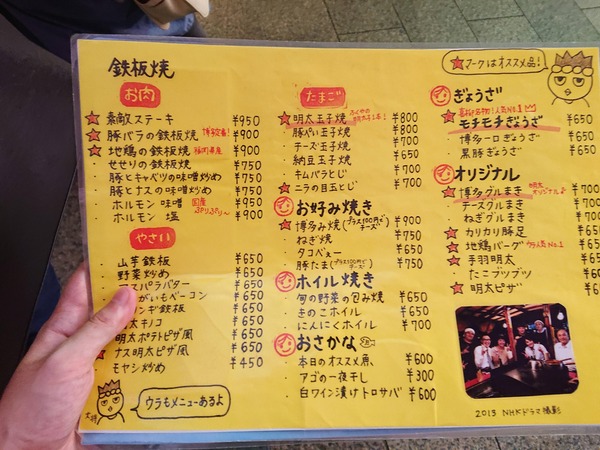 ★マークはオススメ品!
鉄板焼
お肉
★素敵ステーキ ¥950
★豚バラの鉄板焼 博多定番! ¥900
★地鶏の鉄板焼 福岡県産 ¥900
・せせりの鉄板焼 ¥750
・豚とキャベツの味噌炒め ¥750
・豚とナスの味噌炒め ¥750
・ホルモン味噌 国産 ¥950
・ホルモン 塩 ぷりぷり~ ¥900
やさい
・山芋鉄板 ¥650
・野菜炒め ¥650
スパラバター ¥650
がいもベーコン ¥650
ンギ鉄板 ¥650
太キノコ ¥650
明太ポテトピザ風 ¥650
★ナス明太ピザ風 ¥650
・モヤシ炒め ¥450
大将
ウラもメニューあるよ
たまご
★明太玉子焼 ¥800
・豚ぺい玉子焼 ¥800
・チーズ玉子焼 ¥700
・納豆玉子焼 ¥650
・キムバラとじ ¥700
★ニラの目玉とじ ¥700
お好み焼き
★博多み焼(プラス100円でチーズ) ¥900
・ねぎ焼 ¥750
・タコべぇー ¥650
・豚たま(プラス100円でチーズ) ¥750
ホイル焼き
・旬の野菜の包み焼 ¥650
・きのこホイル ¥650
・にんにくホイル ¥700
おさかな
・本日のオススメ魚 ¥600
・アゴの一夜干し ¥300
・白ワイン漬けトロサバ ¥600
ぎょうざ
人気No.1
★モチモチぎょうざ ¥650
・博多一口ぎょうざ ¥650
・黒豚ぎょうざ ¥650
オリジナル
★博多グルまき 明太オリジナル ¥700
・チーズグルまき ¥700
・ねぎグルまき ¥700
★カリカリ豚足 ¥650
★地鶏バーグ 人気No.1 ¥650
★手羽明太 ¥650
・たこブツブツ ¥650
★明太ピザ ¥650
2013 NHKドラマ撮影